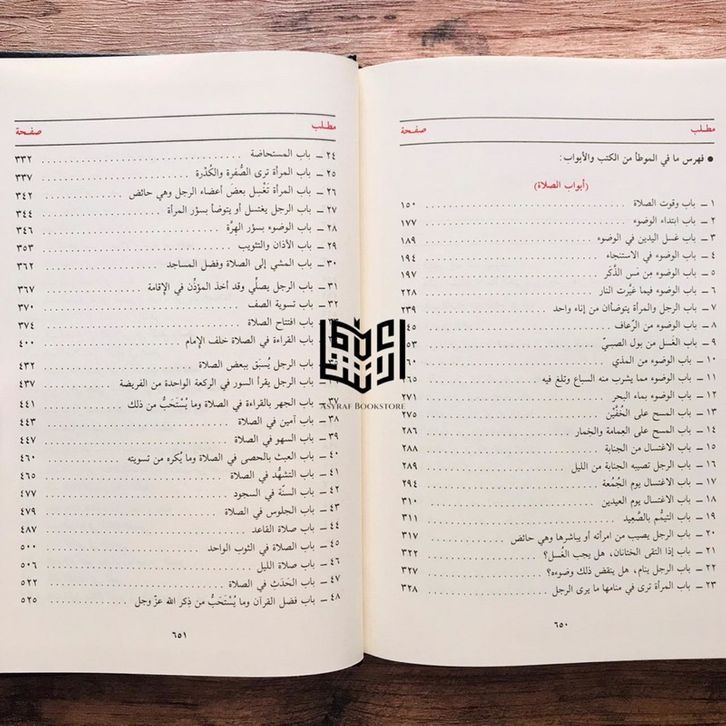 مطلب صفحة
● فهرس ما في الموطأ من الكتب والأبواب:
(أبواب الصلاة)
١ ـ باب وقوت الصلاة ١٥٠
٢ ـ باب ابتداء الوضوء ١٧٧
٣ ـ باب غسل اليدين في الوضوء ١٨٩
٤ ـ باب الوضوء في الاستنجاء ١٩٤
٥ ـ باب الوضوء من مَس الذَّكَر ١٩٧
٦ ـ باب الوضوء فيما غيَّرت النار ٢٢٨
٧ ـ باب الرجل والمرأة يتوضأان من إناء واحد ٢٣٩
٨ ـ باب الوضوء من الرّعاف ٢٤٥
٩ ـ باب الغَسل من بول الصبيّ ٥٣
١٠ ـ باب الوضوء من المذي ٢٦٠
١١ ـ باب الوضوء مما يشرب منه السباع وتلغ فيه ٢٦٥
١٢ ـ باب الوضوء بماء البحر ٢٧٢
١٣ ـ باب المسح على الخُفَّين ٢٧٥
١٤ ـ باب المسح على العِمامة والخِمار ٢٨٦
١٥ ـ باب الاغتسال من الجنابة ٢٨٨
١٦ ـ باب الرجل تصيبه الجنابة من الليل ٢٨٩
١٧ ـ باب الاغتسال يوم الجُمُعة ٢٩١
١٨ ـ باب الاغتسال يوم العيدين ٣١٠
١٩ ـ باب التيمُّم بالصَّعِيد ٣١١
٢٠ ـ باب الرجل يصيب من امرأته أو يباشرها وهي حائض ٣١٧
٢١ ـ باب إذا التقى الختانان، هل يجب الغُسل؟ ٣٢٢
٢٢ ـ باب الرجل ينام، هل ينقض ذلك وضوءه؟ ٣٢٧
٢٣ ـ باب المرأة ترى في منامها ما يرى الرجل ٣٢٨
٦٥٠
مطلب صفحة
٢٤ ـ باب المستحاضة ٣٣٢
٢٥ ـ باب المرأة ترى الصُّفرة والكُدْرة ٣٣٧
٢٦ ـ باب المرأة تَغْسِل بعضَ أعضاء الرجل وهي حائض ٣٤٢
٢٧ ـ باب الرجل يغتسل أو يتوضأ بسؤر المرأة ٣٤٤
٢٨ ـ باب الوضوء بسؤر الهِرَّة ٣٤٦
٢٩ ـ باب الأذان والتثويب ٣٥٣
٣٠ ـ باب المشي إلى الصلاة وفضل المساجد ٣٦٢
٣١ ـ باب الرجل يصلِّي وقد أخذ المؤذِّن في الإقامة ٣٦٧
٣٢ ـ باب تسوية الصف ٣٧٠
٣٣ ـ باب افتتاح الصلاة ٣٧٤
٣٤ ـ باب القراءة في الصلاة خلف الإمام ٤٠٠
باب الرجل يُسبَق ببعض الصلاة ٤٣٢
باب الرجل يقرأ السور في الركعة الواحدة من الفريضة ٤٣٧
٣٧ ـ باب الجهر بالقراءة في الصلاة وما يُسْتَحَبُّ من ذلك ٤٤١
٣٨ ـ باب آمين في الصلاة ٤٤٣
٣٩ ـ باب السهو في الصلاة ٤٤٧
٤٠ ـ باب العبث بالحصى في الصلاة وما يُكره من تسويته ٤٦٠
٤١ ـ باب التشهُّد في الصلاة ٤٦٥
٤٢ ـ باب السنّة في السجود ٤٧٧
٤٣ ـ باب الجلوس في الصلاة ٤٧٩
٤٤ ـ باب صلاة القاعد ٤٨٧
٤٥ ـ باب الصلاة في الثوب الواحد ٥٠٠
٤٦ ـ باب صلاة الليل ٥٠٦
٤٧ ـ باب الحَدَث في الصلاة ٥٢٢
٤٨ ـ باب فضل القرآن وما يُسْتَحَبُّ من ذِكر الله عزّ وجل ٥٢٥
٦٥١
ASYRAF BOOKSTORE